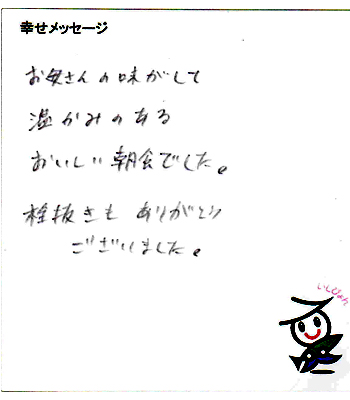 幸せメッセージ
お母さんの味がして
温かみのある
おいしい朝食でした。
栓抜きも ありがとう
ございました。